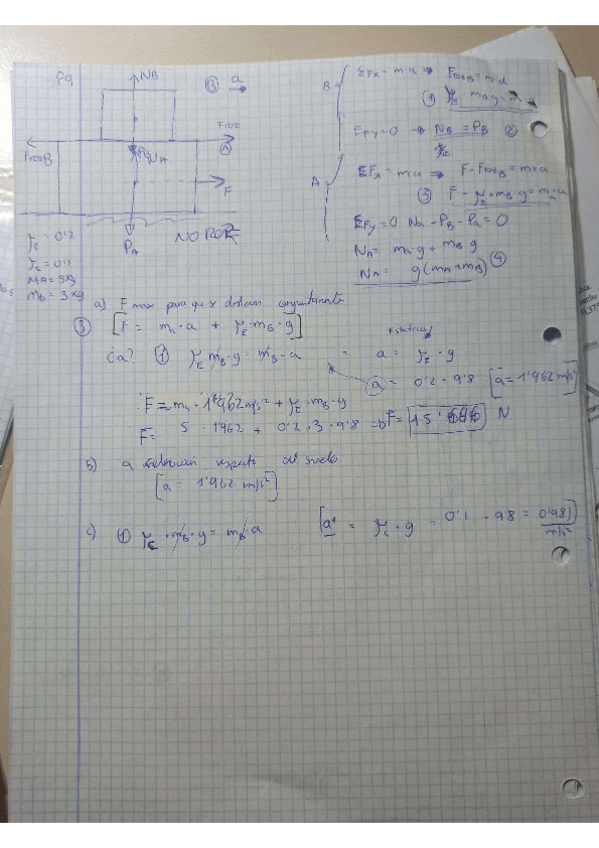 NB
B a
Froz
A
FrozB
PB
NA
F
PA
NO ROZ
μE = 0'2
μc = 0'1
MA = 5Kg
mB = 3 Kg
B
ΣFx = m·a ⇒ FrozB = m·a
① μE mB g = m a
ΣFy = 0 → NB = PB ②
A
ΣFx = m·a ⇒ F - FrozB = mA·a
③ F - μE · mB · g = mA · a
ΣFy = 0 NA - PB - PA = 0
NA = mA·g + mB g
NA = g(mA+mB) ④
a) F max para que se deslicen conjuntamente
③ [F = mA · a + μE · mB · g]
Estática
¿a? ① μE mB · g = mB · a = a = μE · g
a = 0'2 · 9'8 [a = 1'962 m/s²]
F = mA · 1'962 m/s² + μE · mB · g
F = 5 · 1'962 + 0'2 · 3 · 9'8 ⇒ F = 15' N
b) a respecto al suelo
[a = 1'962 m/s²]
c) ① μc · mB · g = mB · a [a' = μc · g = 0'1 · 9'8 = 0'981 m/s²]